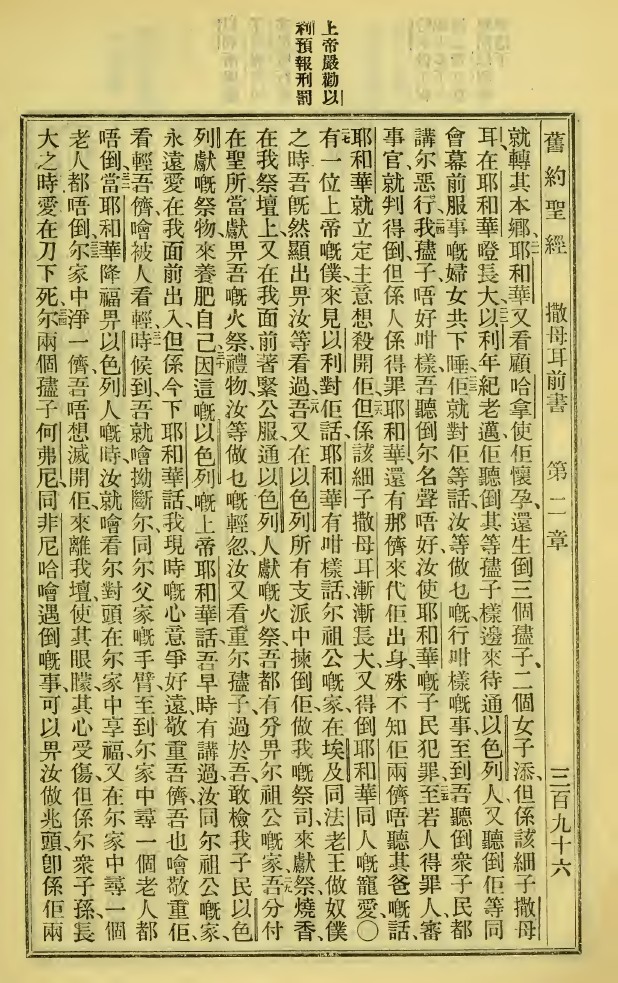 上帝嚴勸以
利預報刑罰
舊約聖經 撒母耳前書 第二章 三百九十六
就轉其本鄉、二一耶和華又看顧哈拿使佢懷孕、還生倒三個孺子、二個女子添、但係該細子撒母
耳在耶和華蹬長大、二二以利年紀老邁、佢聽倒其等孺子樣邊來待通以色列人、又聽倒佢等同
會幕前服事嘅婦女共下睡、二三佢就對佢等話、汝等做乜嘅行咁樣嘅事、至到吾聽倒衆子民都
講尔惡行、二四我孺子、唔好咁樣、吾聽倒尔名聲唔好、汝使耶和華嘅子民犯罪、二五至若人得罪人、審
事官就判得倒、但係人係得罪耶和華、還有那儕來代佢出身、殊不知佢兩儕唔聽其爸嘅話、
耶和華就立定主意想殺開佢、二六但係該細子撒母耳漸漸長大、又得倒耶和華同人嘅寵愛〇
二七有一位上帝嘅僕來見以利對佢話、耶和華有咁樣話、尔祖公嘅家在埃及同法老王做奴僕
之時、吾旣然顯出畀汝等看過、二八吾又在以色列所有支派中揀倒佢、做我嘅祭司、來獻祭燒香、
在我祭壇上、又在我面前著緊公服、通以色列人獻嘅火祭、吾都有分畀尔祖公嘅家、二九吾分付
在聖所當獻畀吾嘅火祭禮物、汝等做乜嘅輕忽、汝又看重尔孺子過於吾、敢檢我子民以色
列獻嘅祭物、來養肥自己、三十因這嘅以色列嘅上帝耶和華話、吾早時有講過、汝同尔祖公嘅家、
永遠愛在我面前出入、但係今下耶和華話、我現時嘅心意爭好遠、敬重吾儕、吾也噲敬重佢、
看輕吾儕、噲被人看輕、三一時候到、吾就噲拗斷尔同尔父家嘅手臂、至到尔家中尋一個老人都
唔倒、三二當耶和華降福畀以色列人嘅時、汝就噲看尔對頭在尔家中享福、又在尔家中尋一個
老人都唔倒、三三尔家中淨一儕、吾唔想滅開佢、來離我壇、使其眼朦其心受傷、但係尔衆子孫長
大之時、愛在刀下死、三四尔兩個孺子何弗尼、同非尼哈噲遇倒嘅事、可以畀汝做兆頭、卽係佢兩